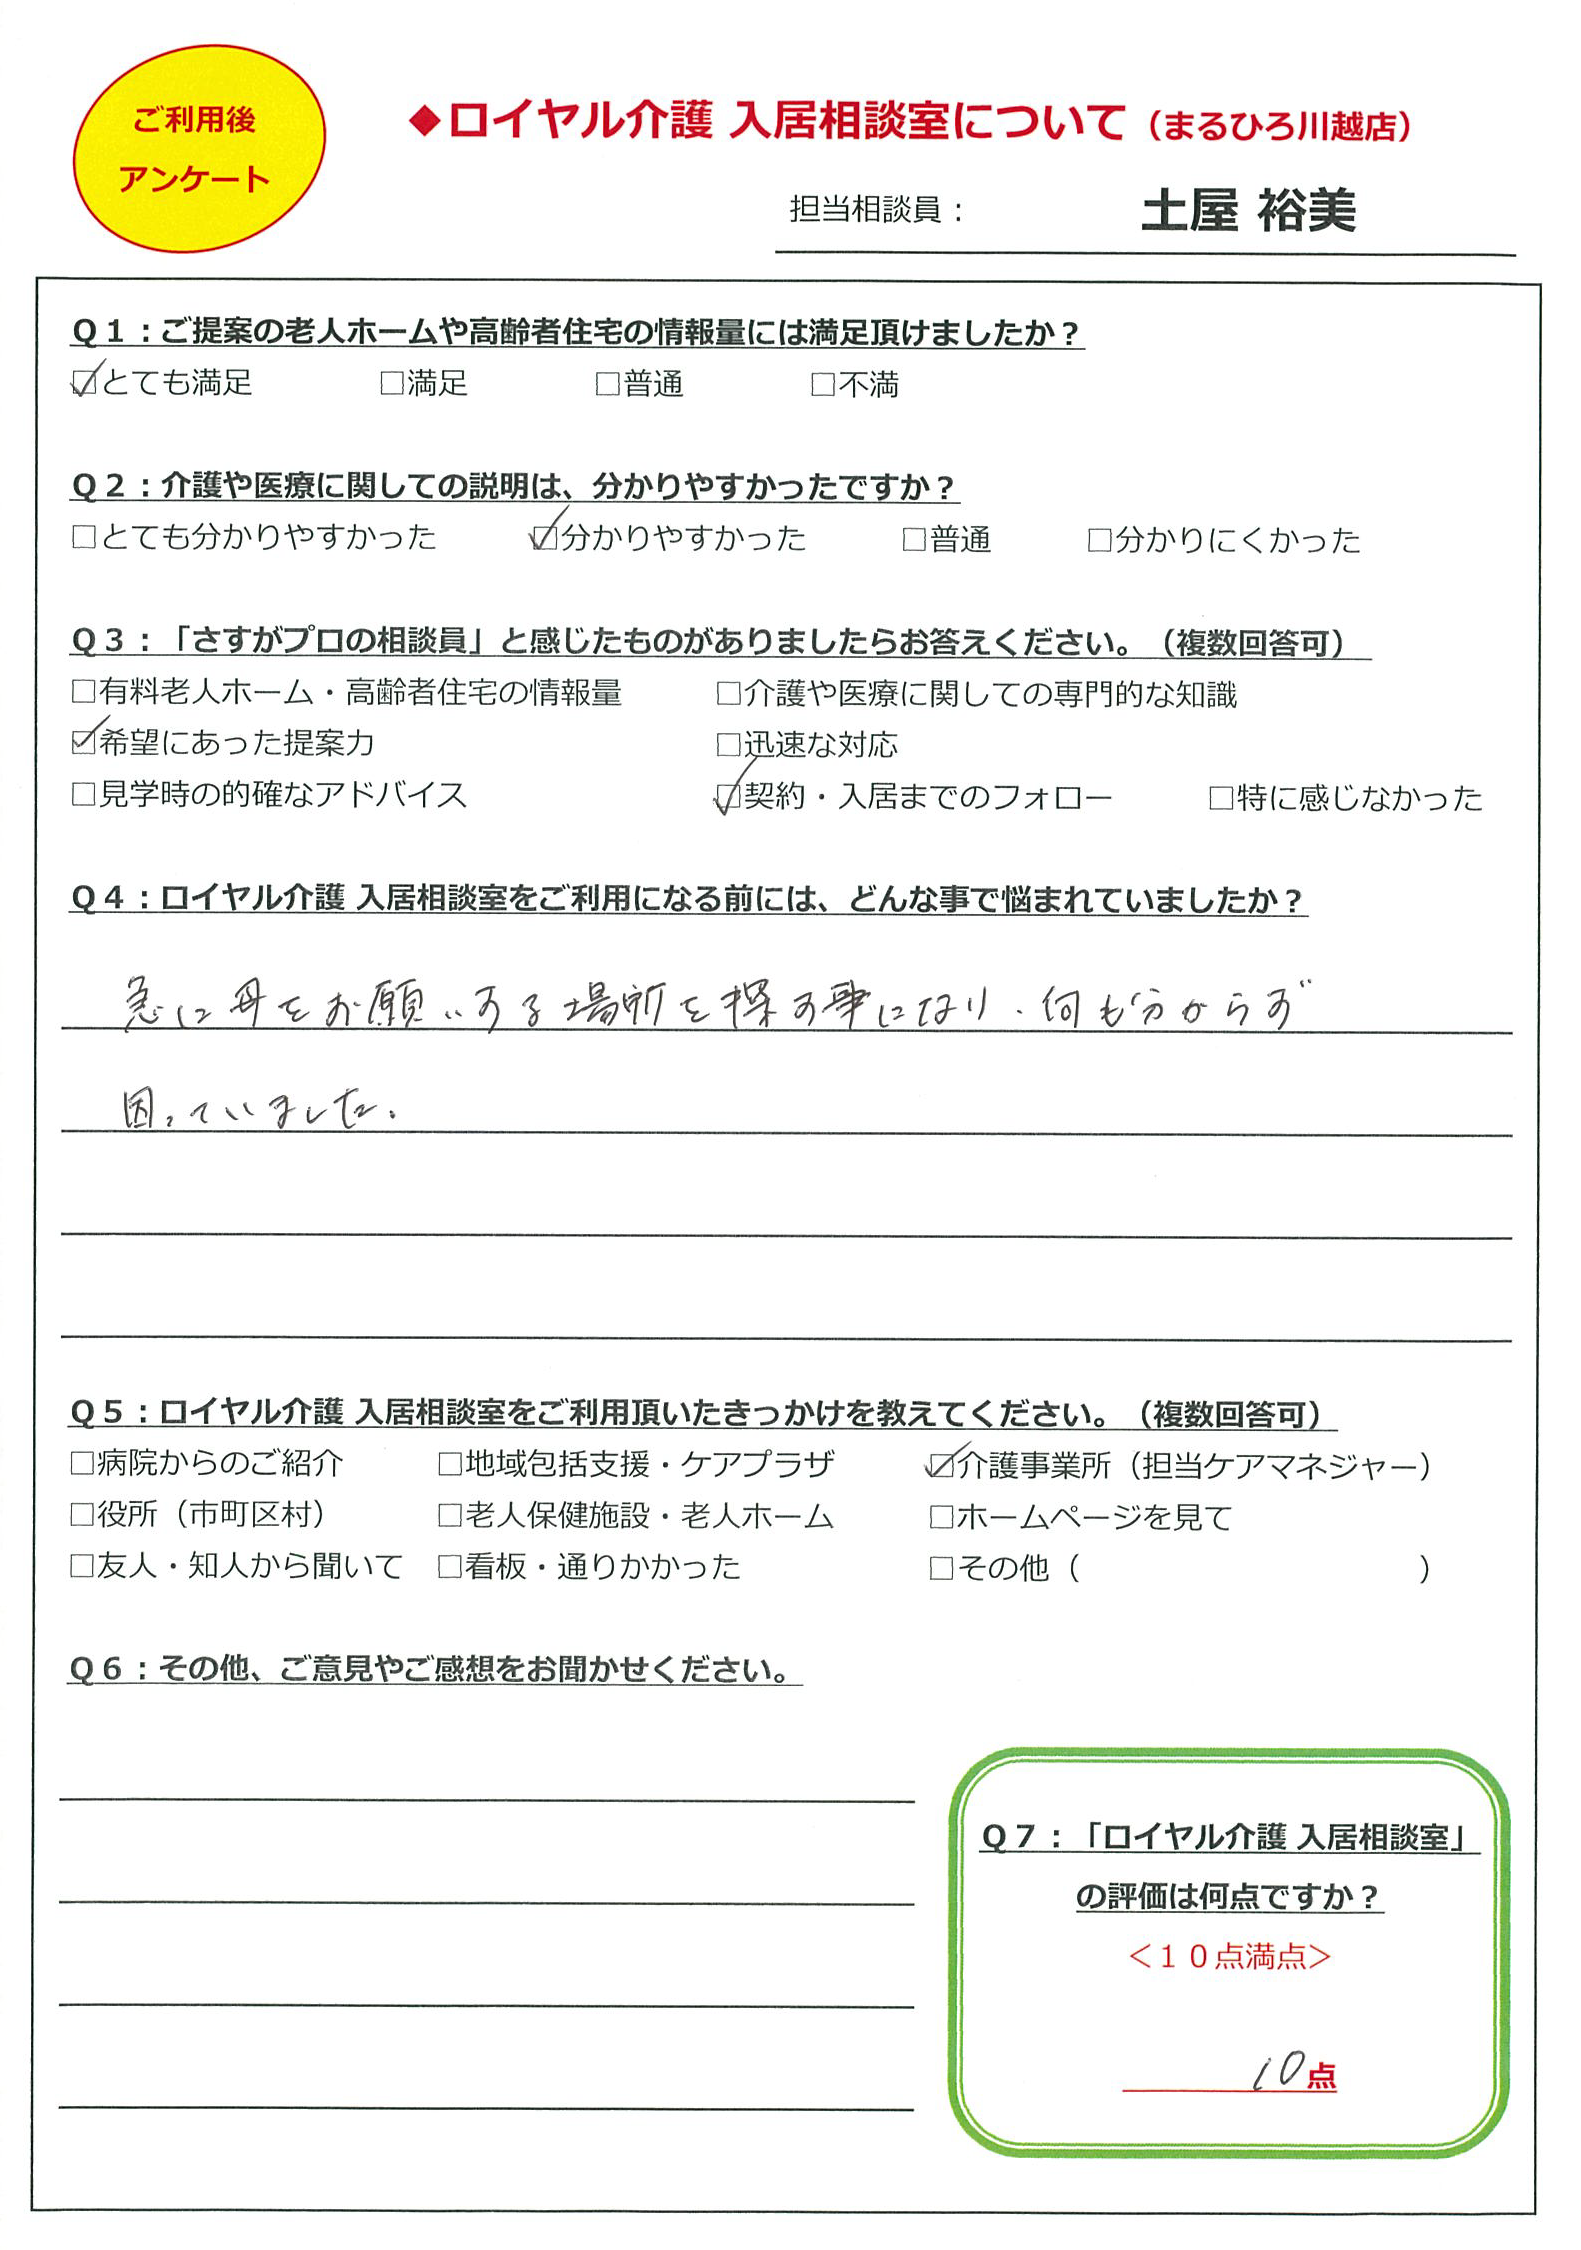 ご利用後
アンケート
◆ロイヤル介護 入居相談室について（まるひろ川越店）
担当相談員： 土屋 裕美
Q１：ご提案の老人ホームや高齢者住宅の情報量には満足頂けましたか？
☑とても満足 □満足 □普通 □不満
Q２：介護や医療に関しての説明は、分かりやすかったですか？
□とても分かりやすかった ☑分かりやすかった □普通 □分かりにくかった
Q３：「さすがプロの相談員」と感じたものがありましたらお答えください。（複数回答可）
□有料老人ホーム・高齢者住宅の情報量 □介護や医療に関しての専門的な知識
☑希望にあった提案力 □迅速な対応
□見学時の的確なアドバイス ☑契約・入居までのフォロー □特に感じなかった
Q４：ロイヤル介護 入居相談室をご利用になる前には、どんな事で悩まれていましたか？
急に母をお願いする場所を探す事になり、何も分からず
困っていました。
Q５：ロイヤル介護 入居相談室をご利用頂いたきっかけを教えてください。（複数回答可）
□病院からのご紹介 □地域包括支援・ケアプラザ ☑介護事業所（担当ケアマネジャー）
□役所（市町区村） □老人保健施設・老人ホーム □ホームページを見て
□友人・知人から聞いて □看板・通りかかった □その他（ ）
Q６：その他、ご意見やご感想をお聞かせください。
Q７：「ロイヤル介護 入居相談室」
の評価は何点ですか？
＜１０点満点＞
10点